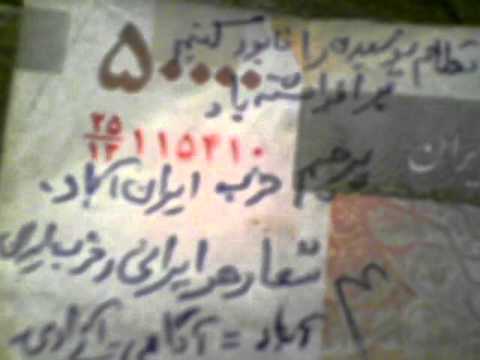 نظام پوسیده را نابود کنیم
۵۰۰۰۰
برافراشته باد
۲۵/۱۲ ۱۱۵۲۱۰
پرچم حزب ایران آباد.
یران
شعار هر ایرانی
آباد = آگاهی = آزادی
۳